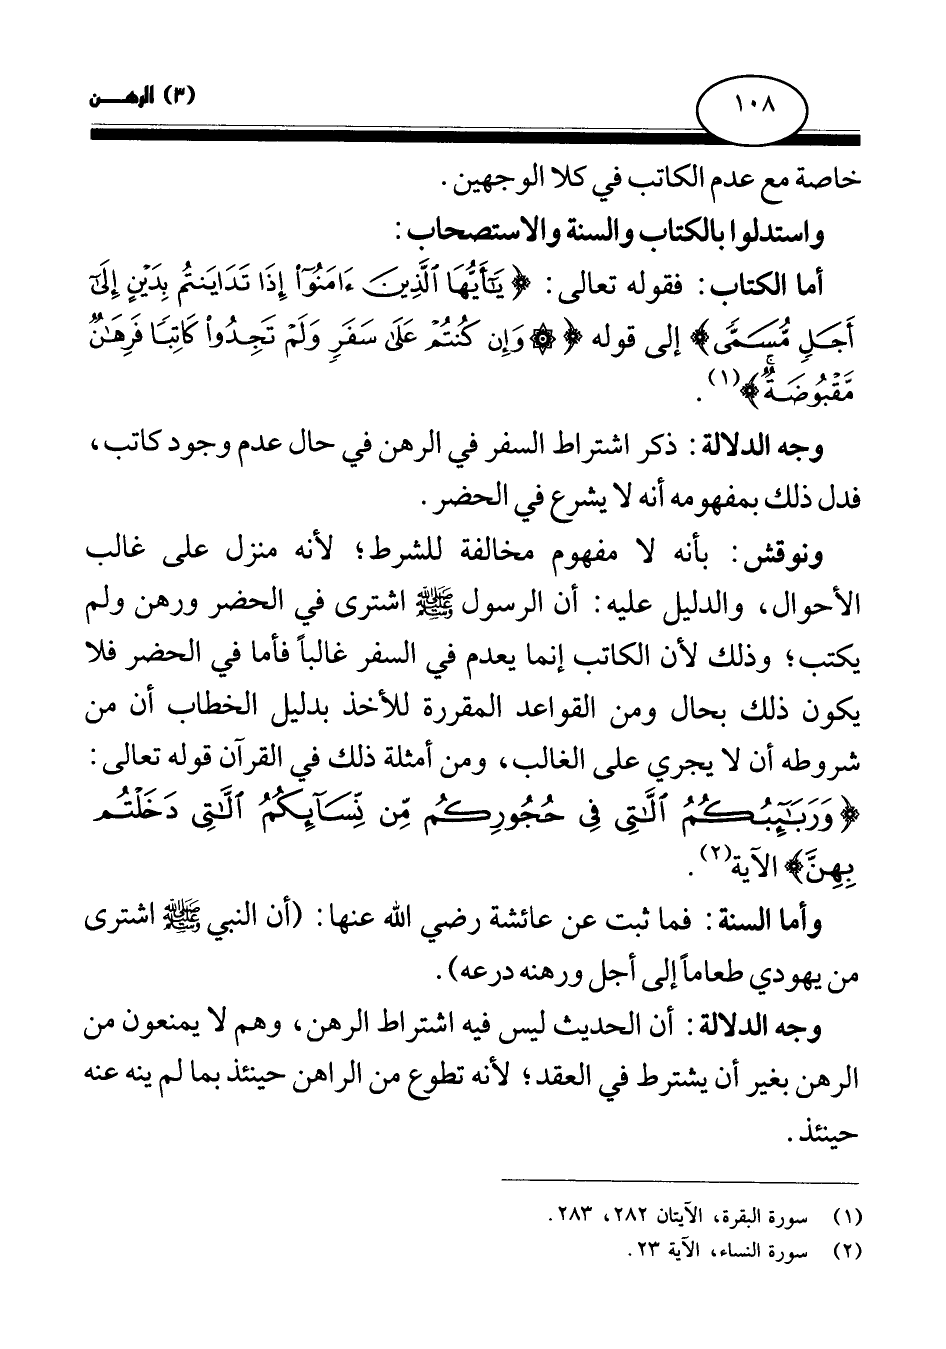 (٣) الرهـــن
١٠٨
خاصة مع عدم الكاتب في كلا الوجهين.
واستدلوا بالكتاب والسنة والاستصحاب:
أما الكتاب: فقوله تعالى: ﴿يَٰٓأَيُّهَا ٱلَّذِينَ ءَامَنُوٓا۟ إِذَا تَدَايَنتُم بِدَيْنٍ إِلَىٰٓ
أَجَلٍ مُّسَمًّى﴾ إلى قوله ﴿۞ وَإِن كُنتُمْ عَلَىٰ سَفَرٍ وَلَمْ تَجِدُوا۟ كَاتِبًا فَرِهَٰنٌ
مَّقْبُوضَةٌ﴾(١).
وجه الدلالة: ذكر اشتراط السفر في الرهن في حال عدم وجود كاتب،
فدل ذلك بمفهومه أنه لا يشرع في الحضر.
ونوقش: بأنه لا مفهوم مخالفة للشرط؛ لأنه منزل على غالب
الأحوال، والدليل عليه: أن الرسول ﷺ اشترى في الحضر ورهن ولم
يكتب؛ وذلك لأن الكاتب إنما يعدم في السفر غالباً فأما في الحضر فلا
يكون ذلك بحال ومن القواعد المقررة للأخذ بدليل الخطاب أن من
شروطه أن لا يجري على الغالب، ومن أمثلة ذلك في القرآن قوله تعالى:
﴿وَرَبَٰٓئِبُكُمُ ٱلَّٰتِى فِى حُجُورِكُم مِّن نِّسَآئِكُمُ ٱلَّٰتِى دَخَلْتُم
بِهِنَّ﴾ الآية(٢).
وأما السنة: فما ثبت عن عائشة رضي الله عنها: (أن النبي ﷺ اشترى
من يهودي طعاماً إلى أجل ورهنه درعه).
وجه الدلالة: أن الحديث ليس فيه اشتراط الرهن، وهم لا يمنعون من
الرهن بغير أن يشترط في العقد؛ لأنه تطوع من الراهن حينئذ بما لم ينه عنه
حينئذ.
(١) سورة البقرة، الآيتان ٢٨٢، ٢٨٣.
(٢) سورة النساء، الآية ٢٣.